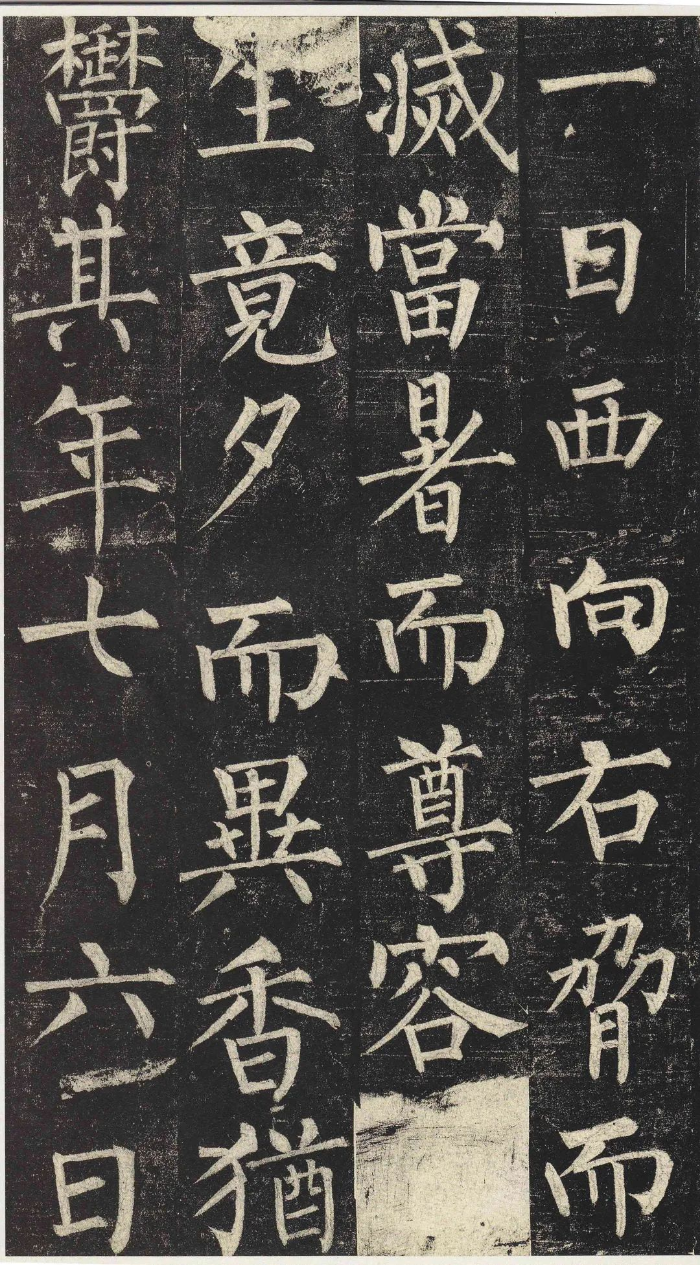 一日西向右脅而
滅當暑而尊容
生竟夕而異香猶
欝其年七月六日